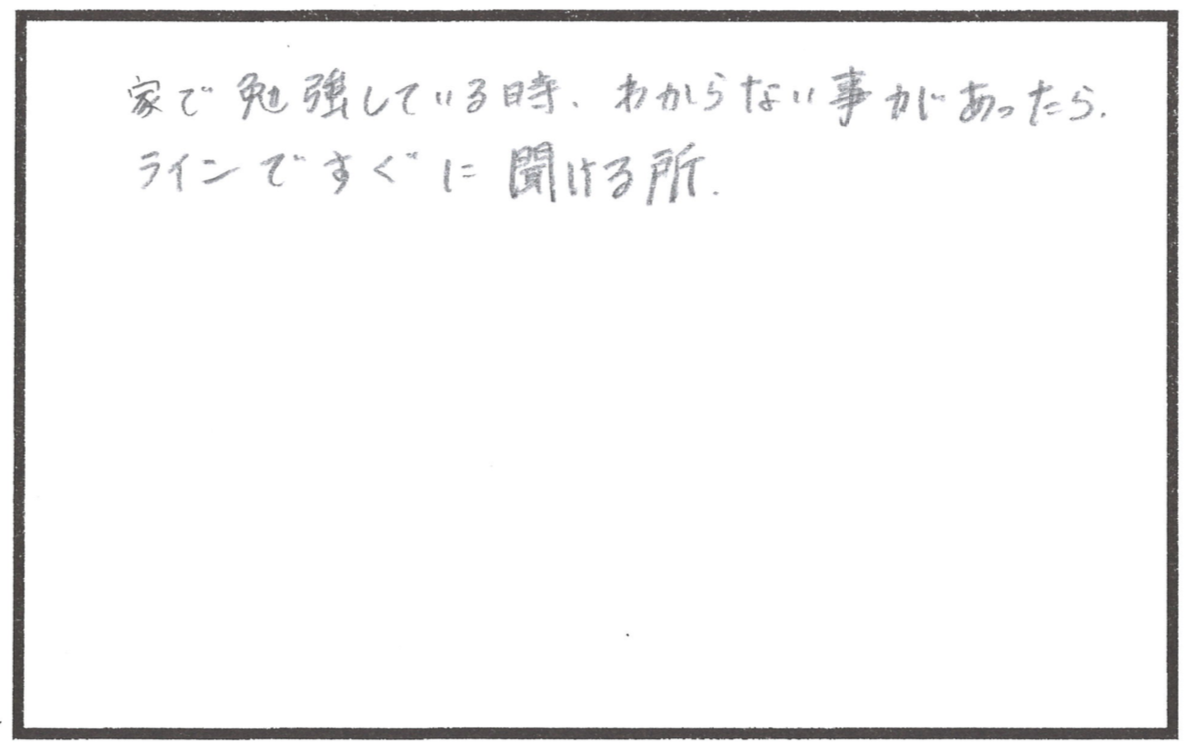 家で勉強している時、わからない事があったら、
ラインですぐに聞ける所.